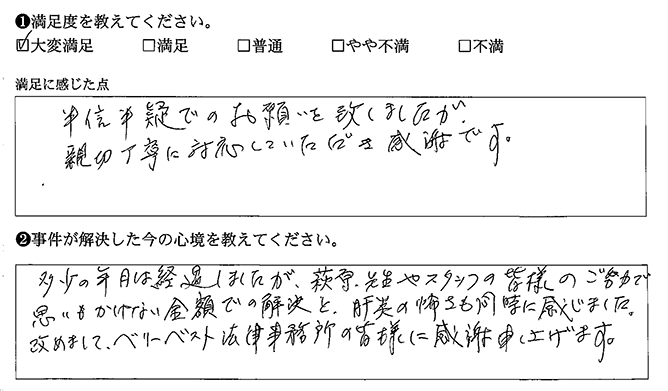 ❶満足度を教えてください。
☑大変満足 □満足 □普通 □やや不満 □不満
満足に感じた点
半信半疑でのお願いを致しましたが、
親切丁寧に対応していただき感謝です。
❷事件が解決した今の心境を教えてください。
多少の年月は経過しましたが、萩原先生やスタッフの皆様のご努力で
思いもかけない金額での解決と、肝炎の怖さも同時に感じました。
改めまして、ベリーベスト法律事務所の皆様に感謝申し上げます。